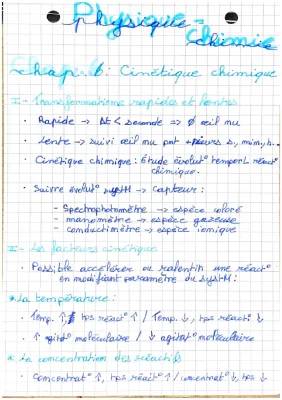 Physique-
Chimie
Chap 6 : Cinétique chimique
I - Transformations rapides et lentes
• Rapide → Δt < seconde => Ø œil nu
• Lente → suivi œil nu pnt
• Cinétique chimique : étude évolut° tempor. réact°
chimique.
• Suivre évolut° systM → Capteur :
- Spectrophotomètre → espèce coloré
- manomètre → espèce gazeuse
- conductimètre → espèce ionique
II - Les facteurs cinétique
• Possible accélérer ou ralentir une réact°
en modifiant paramètre du systM :
* La température :
• Temp. ↑, tps réact° ↑ / Temp. ↓, tps réact° ↓
• ↑ agitat° moléculaire / ↓ agitat° moléculaire
* La concentration des réactifs
• Concentrat° ↑, tps réact° ↑ / concentrat° ↓, tps ↓